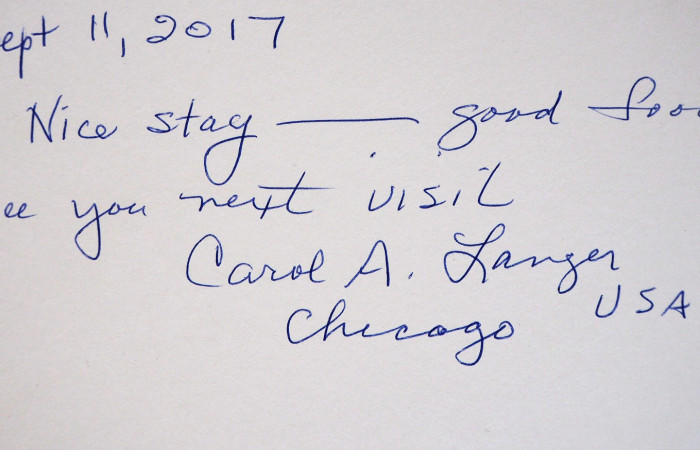 ept 11, 2017
Nice stay — good foo
ee you next visit
Carol A. Langer
Chicago USA